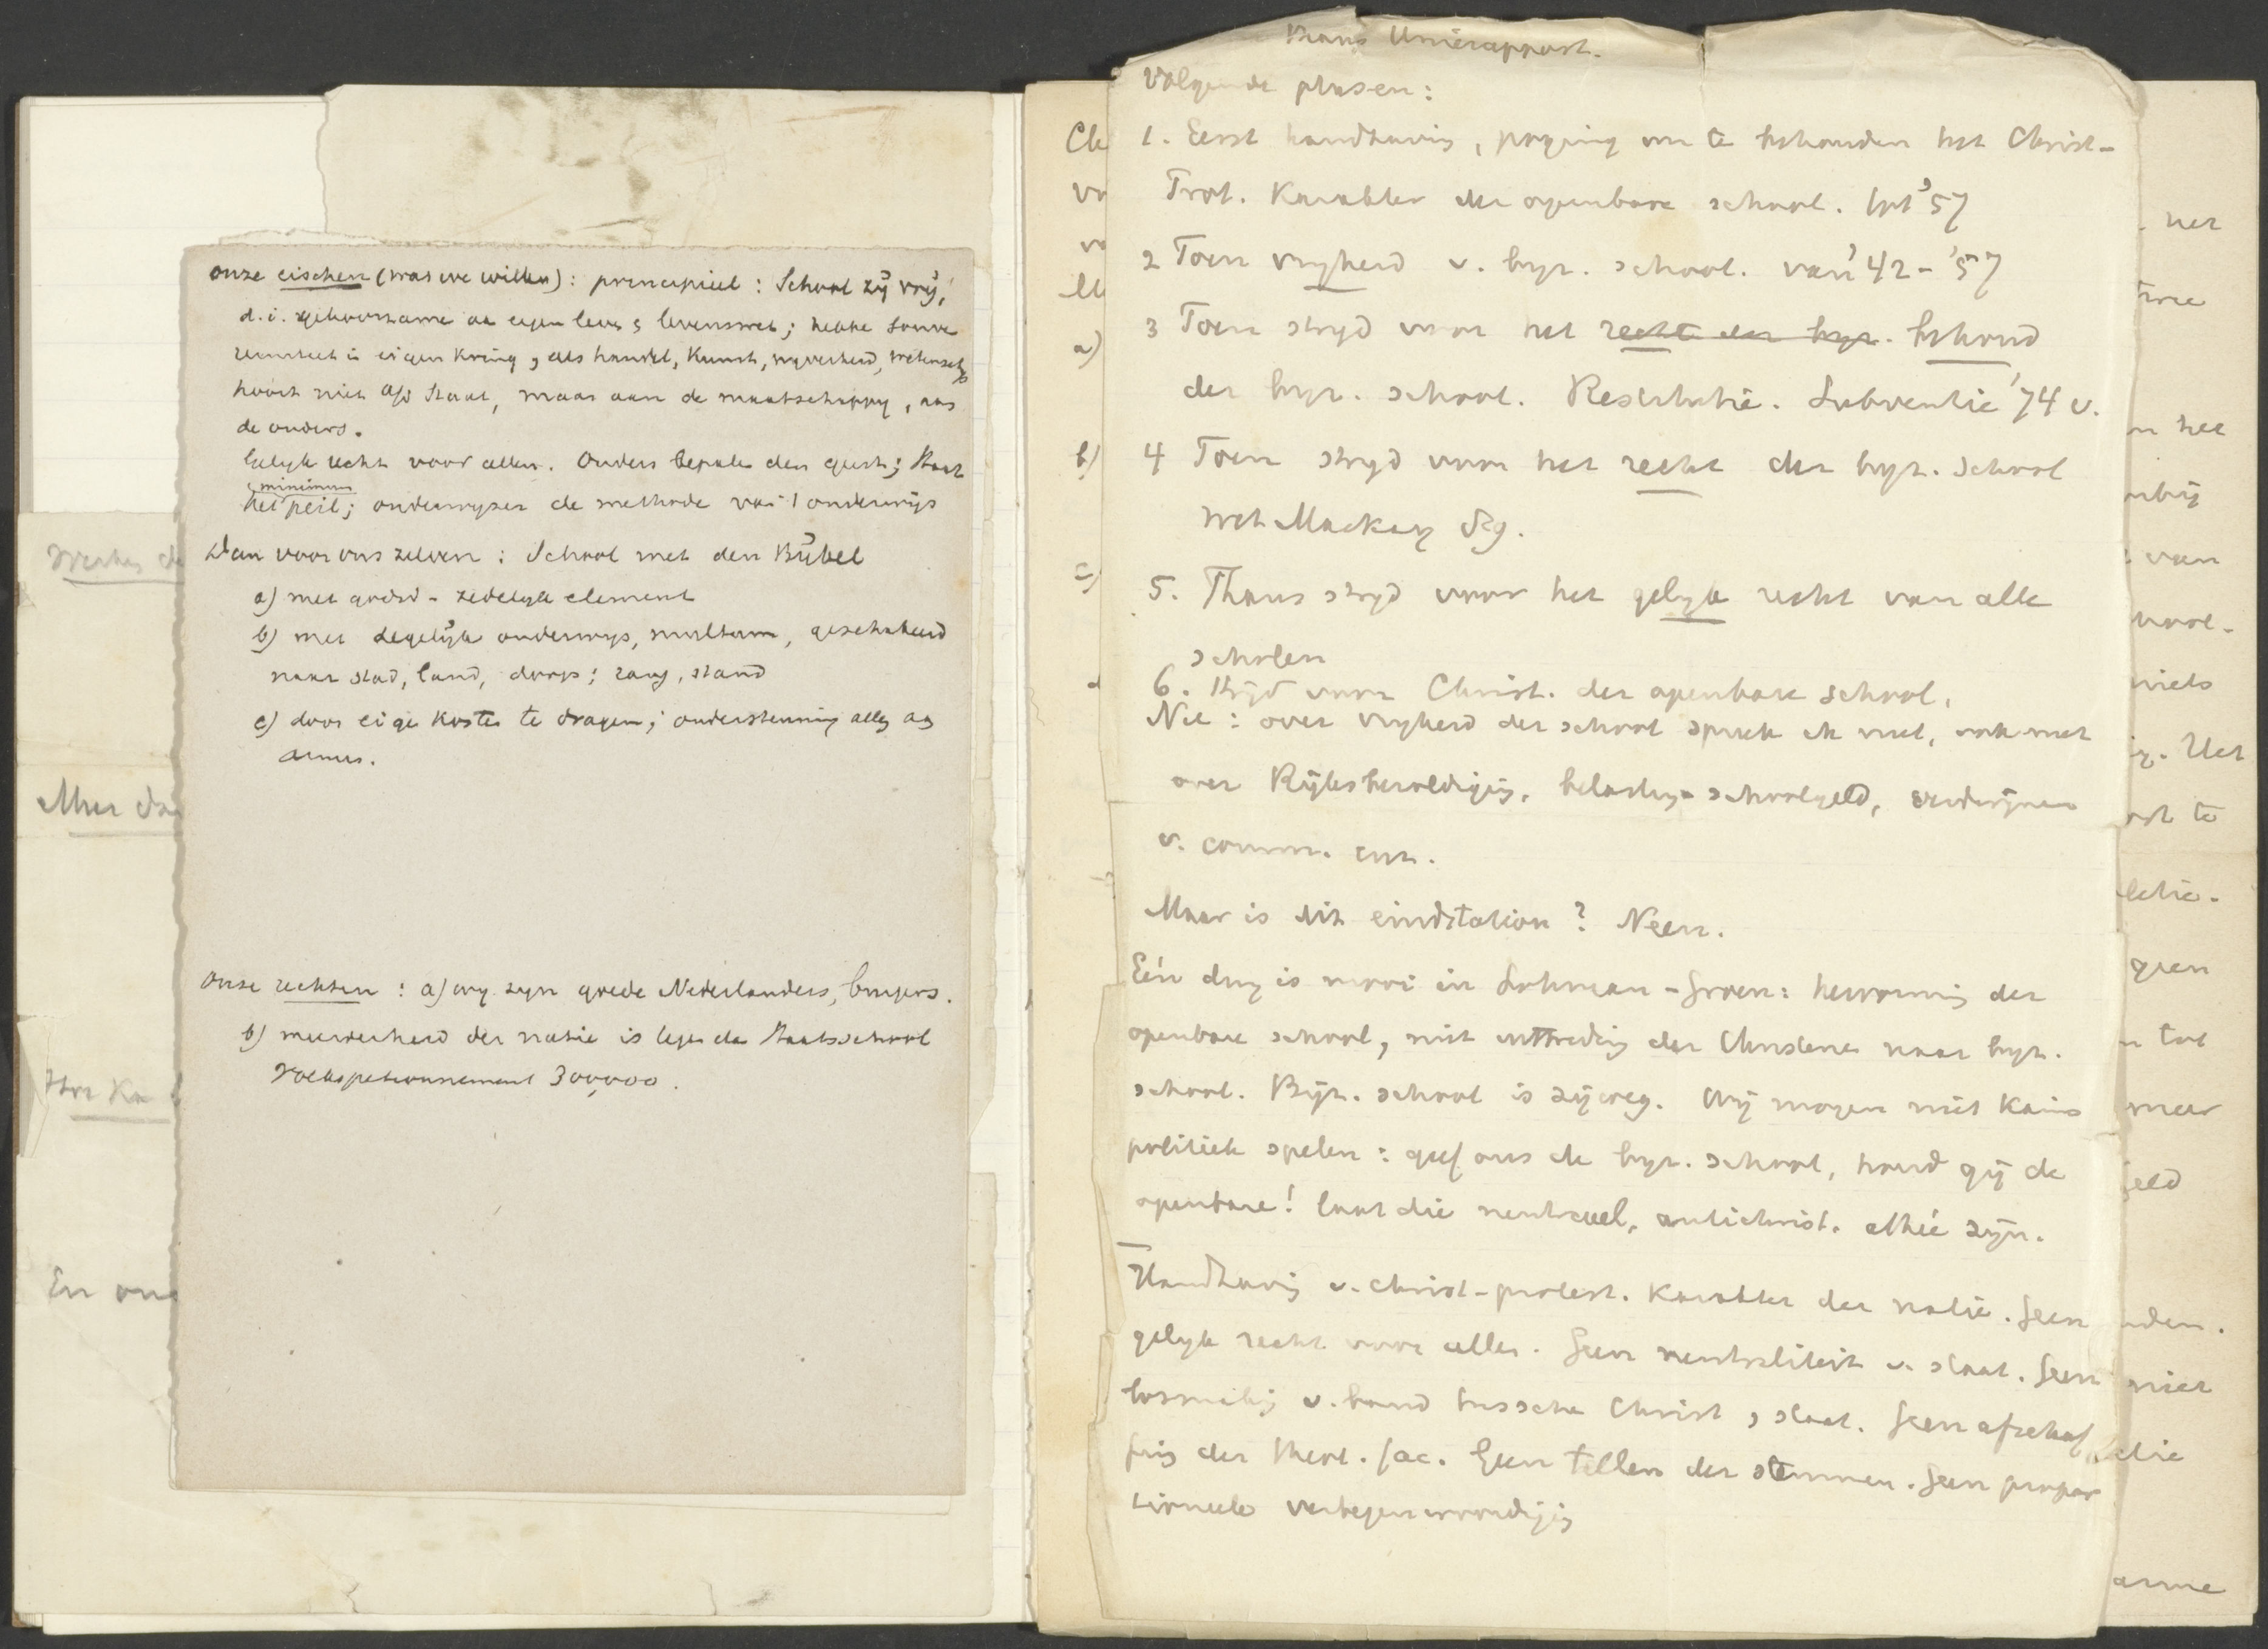 onze eischen (was we willen): principieel: School zij vrij,
d.i. gehoorzame aan eigen leven & levenswet; hebbe souve
reiniteit in eigen kring, als handel, kunst, nijverheid, wetensch
hoort niet a/d Staat, maar aan de maatschappij, aan
de ouders.
Gelijk recht voor allen. Ouders bepalen den geest; Staat
minimum
het peil; onderwijzer de methode van 't onderwijs
Dan voor ons zelven: School met den Bijbel
a) met godsd-zedelijk element
b) met degelijk onderwijs, multum, geschakeerd
naar stad, land, dorp; rang, stand
c) door eigen kosten te dragen; ondersteuning alleen aan
armen.
Onze rechten: a) wij zijn goede Nederlanders, burgers.
b) meerderheid der natie is tegen de Staatsschool
Volkspetionnement 300,000.
Werken de
Meer dan
En onz
Thans Unierapport.
Volgende phasen:
1. Eerst handhaving, poging om te behouden het Christ-
Prot. Karakter der openbare school. tot '57
2 Toen vrijheid v. byz. school. van '42-'57
3 Toen strijd voor het recht der byz. behoud
der byz. school. Restitutie. Subventie '74 v.
4 Toen strijd voor het recht der byz. school
wet Mackay 89.
5. Thans strijd voor het gelijk recht van alle
scholen
6. Strijd voor Christ. der openbare school.
Nu: over vrijheid der school spreek ik niet, ook niet
over Rijksbezoldiging, belasting-schoolgeld,
v. comm. enz.
Maar is dit eindstation? Neen.
Eén ding is mooi in Lohman-Groen: hervorming der
openbare school, niet uittreding der Christenen naar byz.
school. Bijz. school is zijweg. Wij mogen niet Kains
politiek spelen: geef ons de byz. school, houd gij de
openbare! laat die neutraal, antichrist. atheé zijn.
Handhaving v. christ-protest. Karakter der natie. Geen
gelijk recht voor allen. Geen neutraliteit v. staat. Geen
losmaking v. band tusschen Christ & staat. Geen afschaf
fing der theol. fac. Geen tellen der stemmen. Geen propor
tioneele vertegenwoordiging
Ch
a)
b)
c)
net
twee
n het
van
niets
Het
te
geen
n tot
meer
geld
nden.
niet
die
arme